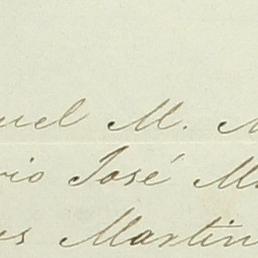 uel M. M
rio José M
us Martin